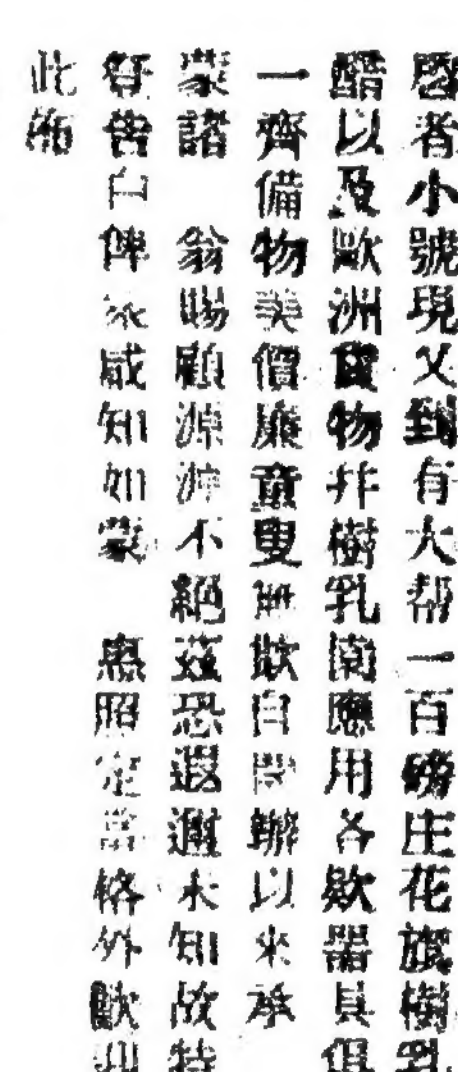 啓者小號現又到有大帮一百磅庄花旗樹乳
醋以及歐洲貨物井樹乳園應用各欵器具俱
一齊備物美價廉童叟無欺自開辦以來承
蒙諸 翁賜顧源源不絕茲恐遐邇未知故特
登告白俾眾咸知如蒙 惠照定當格外歡迎
此佈